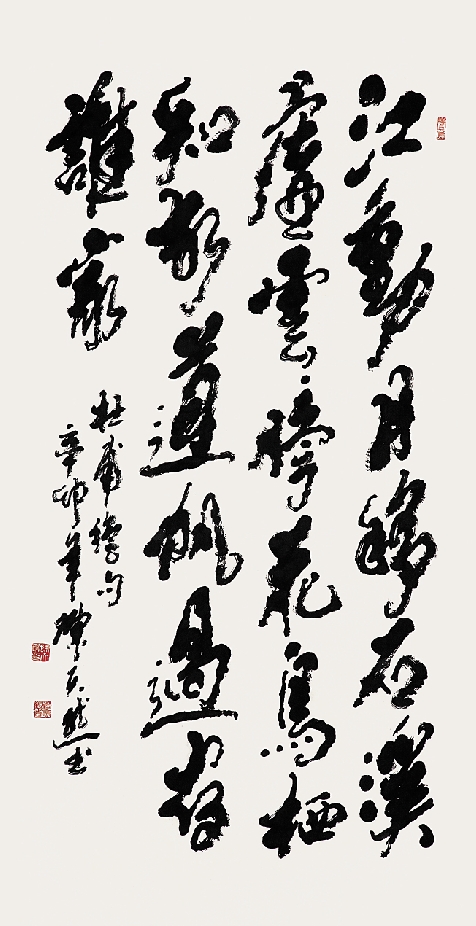 江動月移石溪
虛雲傍花鳥栖
知故道帆過宿
誰家
杜甫絕句
辛卯年陳天然书